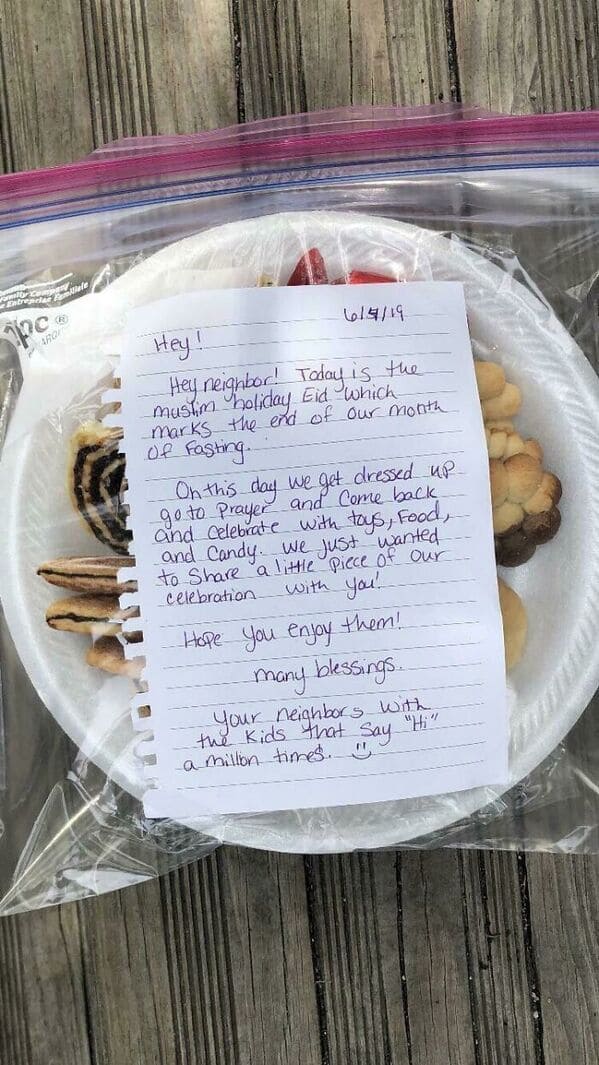 Family Company
Entreprise Familiale
6/4/19
Hey!
Hey neighbor! Today is the
muslim holiday Eid which
marks the end of our month
of Fasting.
On this day we get dressed up
go to prayer and come back
and celebrate with toys, Food,
and Candy. we just wanted
to share a little piece of our
celebration with you!
Hope you enjoy them!
many blessings.
Your neighbors with
the kids that say "Hi"
a million times.